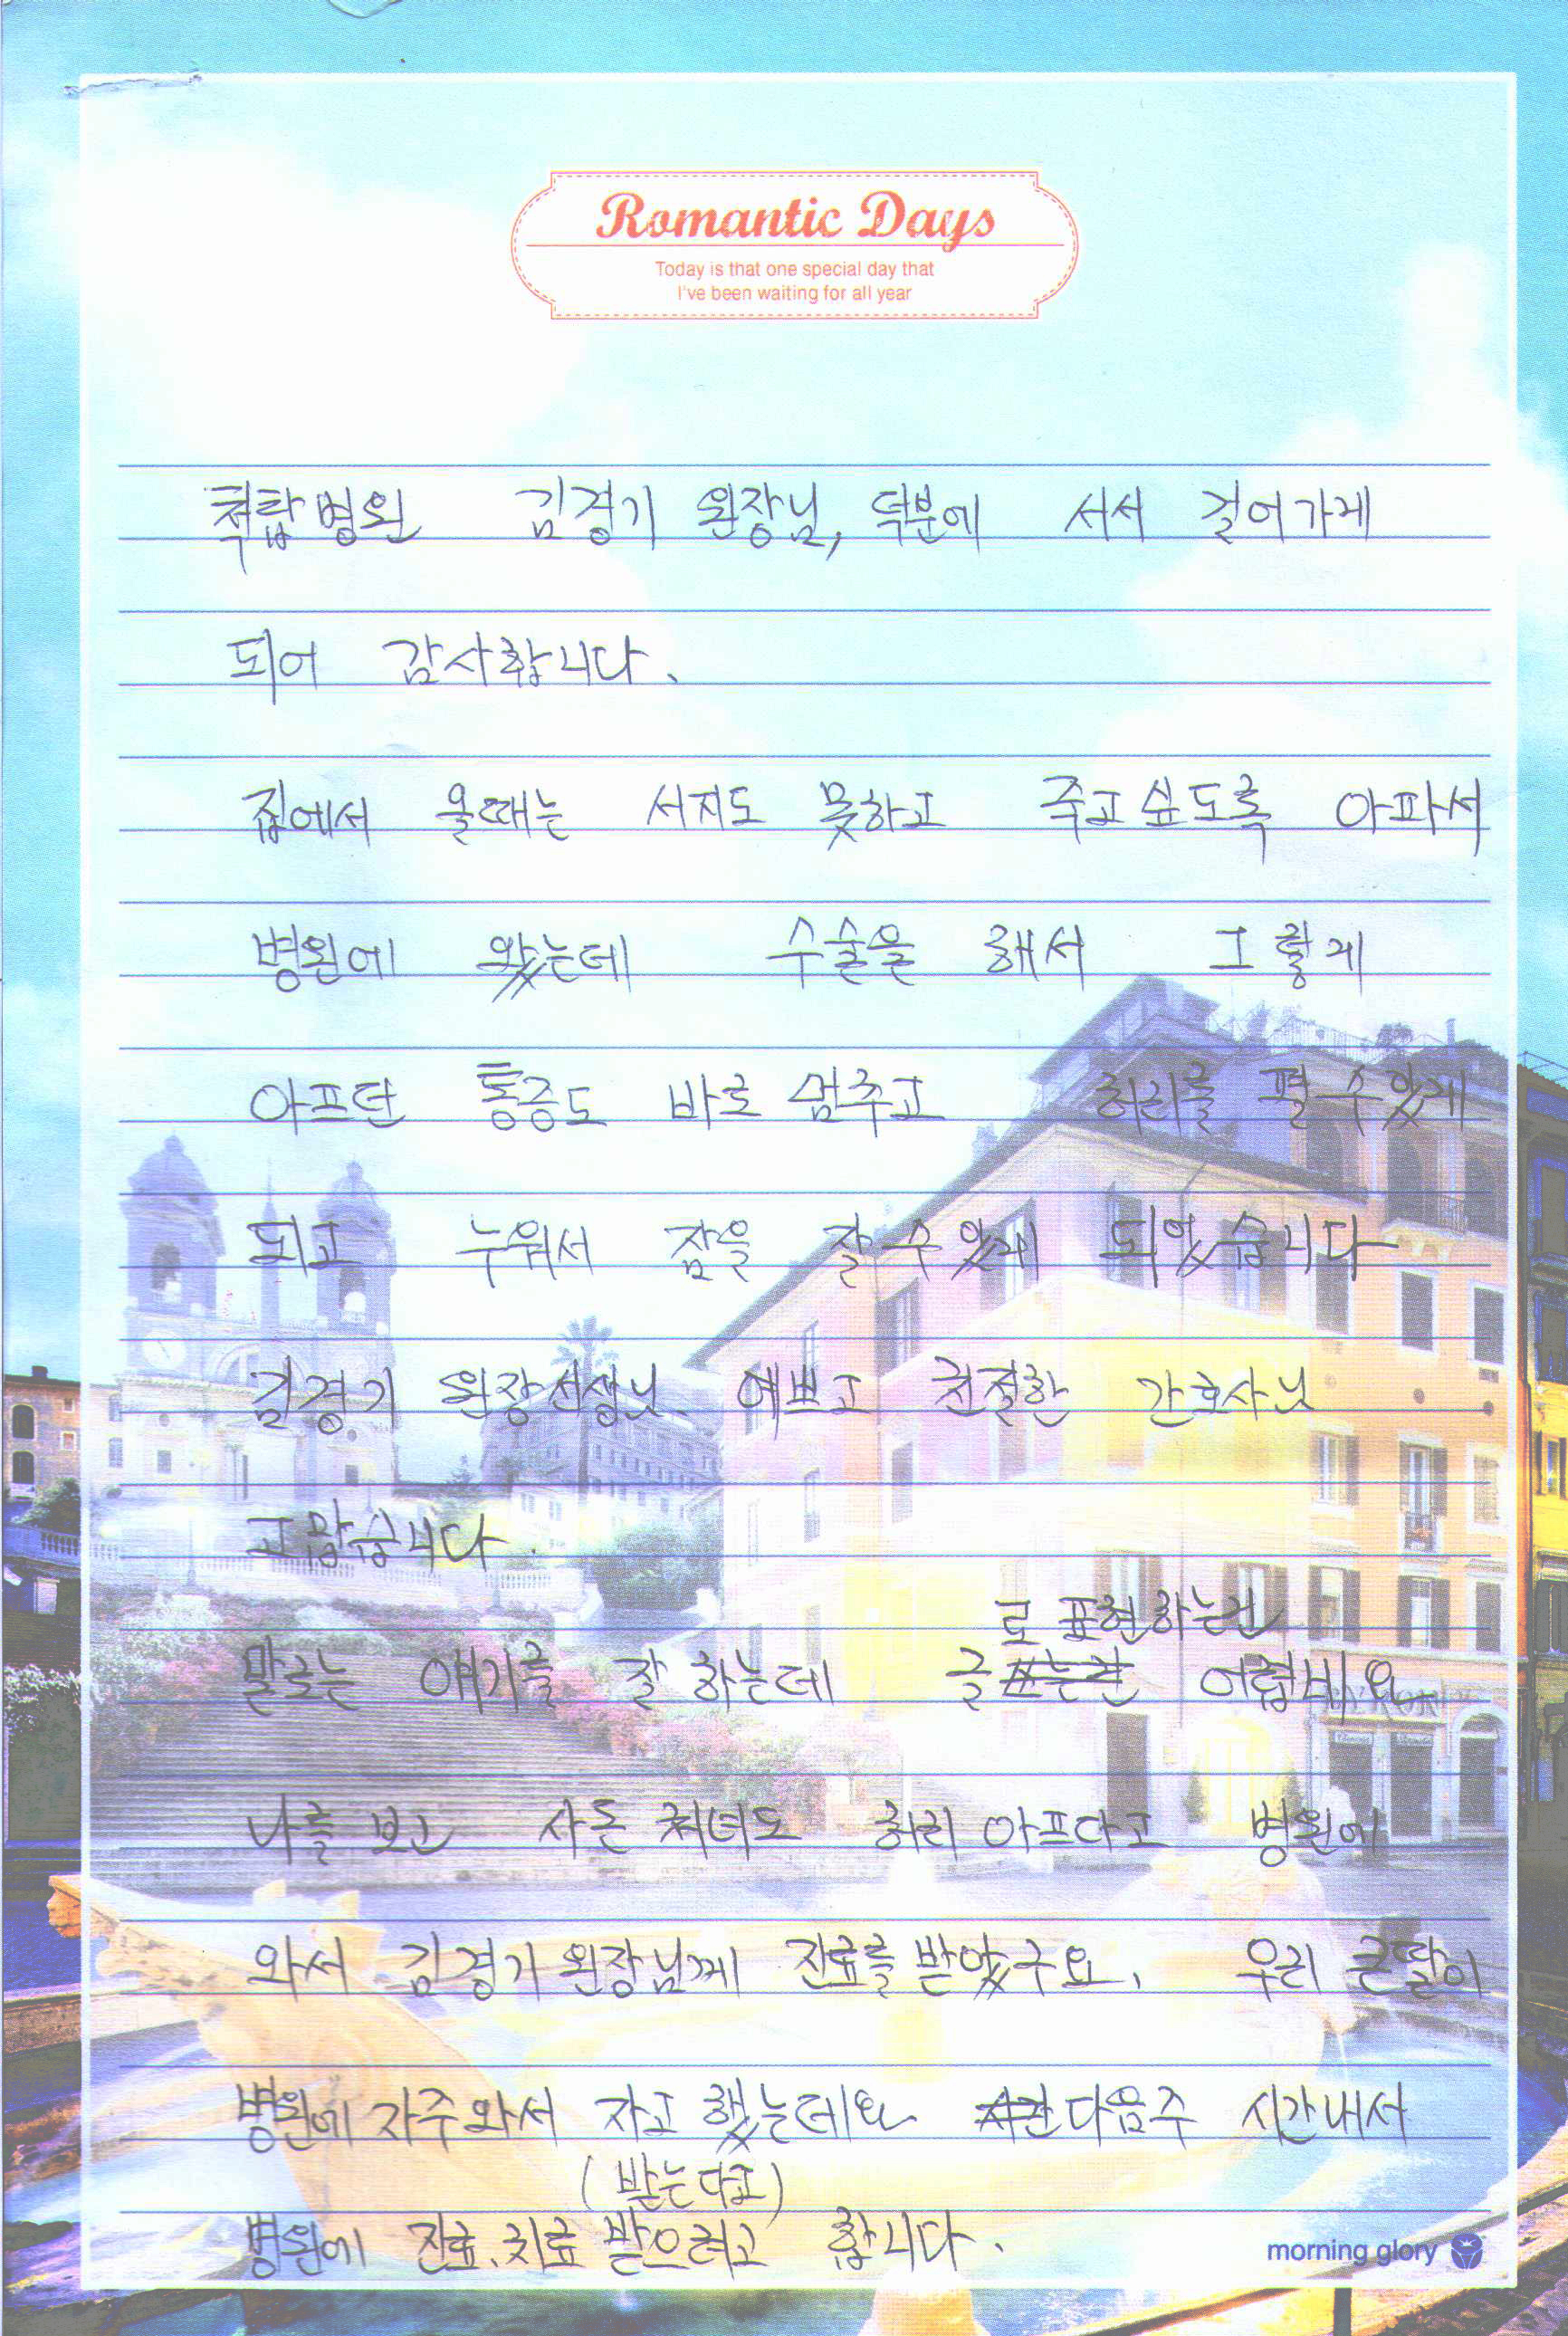 Romantic Days
Today is that one special day that
I've been waiting for all year
척탑병원 김경기 원장님, 덕분에 서서 걸어가게
되어 감사합니다.
집에서 올때는 서지도 못하고 죽고싶도록 아파서
병원에 왔는데 수술을 해서 그렇게
아프던 통증도 바로 멈추고 허리를 펼수있게
되고 누워서 잠을 잘수있게 되었습니다
김경기 원장선생님. 예쁘고 친절한 간호사님
고맙습니다.
로 표현하는건
말로는 얘기를 잘 하는데 글 쓰는건 어렵네요
나를 보고 사돈 처녀도 허리 아프다고 병원에
와서 김경기 원장님께 진료를 받았구요. 우리 큰딸이
병원에 자주와서 자고 했는데요 다음주 시간내서
(받는다고)
병원에 진료.치료 받으려고 합니다.
morning glory